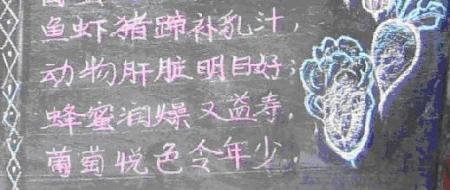 鱼虾猪蹄补乳汁，
动物肝脏明目好；
蜂蜜润燥又益寿，
葡萄悦色令年少。